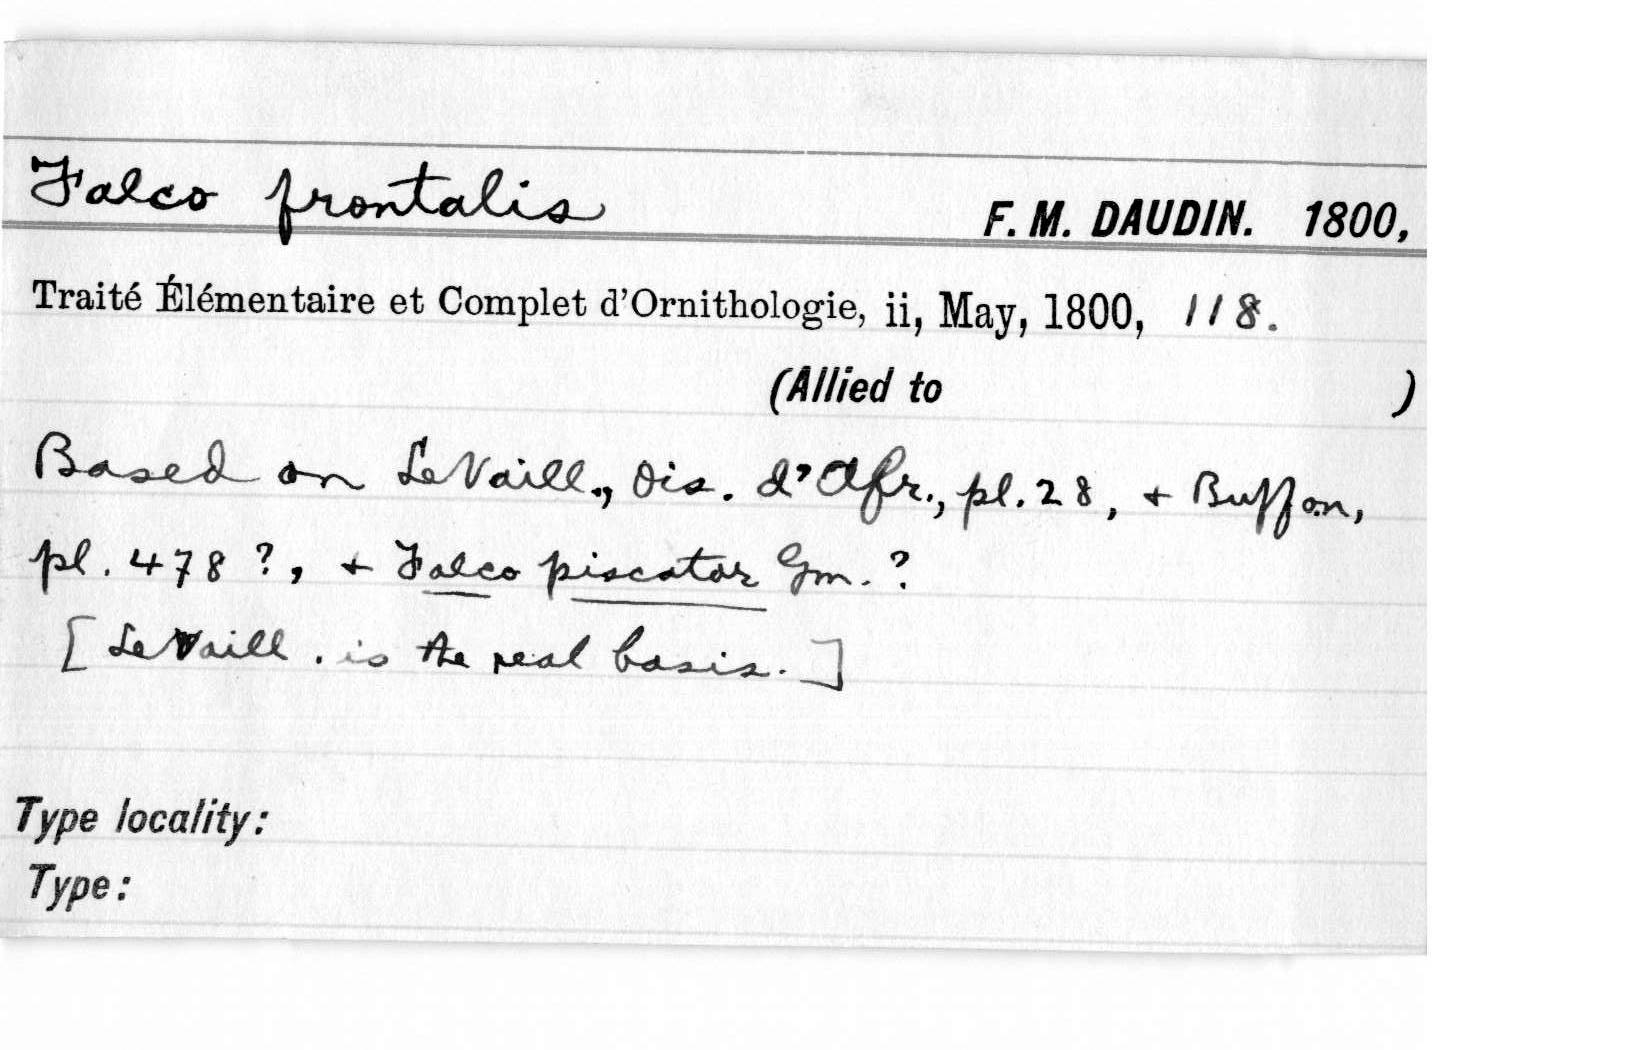 Falco frontalis F. M. DAUDIN. 1800,
Traité Élémentaire et Complet d'Ornithologie, ii, May, 1800, 118.
(Allied to )
Based on LeVaill., Ois. d'Afr., pl. 28, + Buffon,
pl. 478 ?, + Falco piscator Gm. ?
[LeVaill. is the real basis.]
Type locality:
Type: